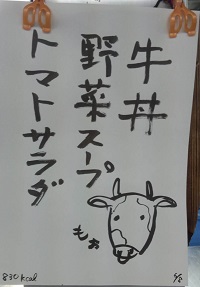 牛丼
野菜スープ
トマトサラダ
もぉ
830 kcal